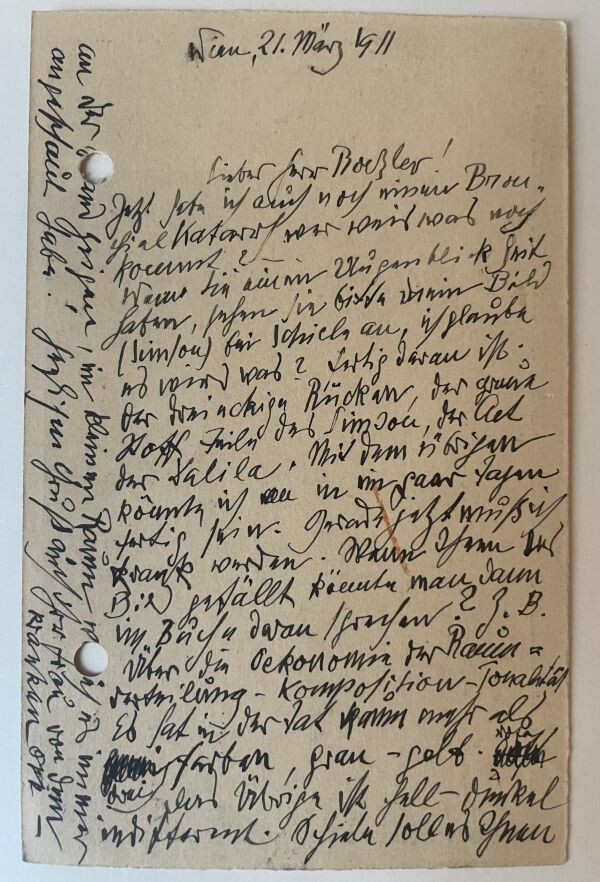 Wien, 21. März 1911
Lieber Herr Roeßler!
Jetzt habe ich auch noch einen Bron-
chial Katarrh wer weis was noch
kommt? –
Wenn Sie einen Augenblick Zeit
haben, sehen Sie bitte mein Bild
(Simson) bei Schiele an, ich glaube
es wird was? Fertig daran ist.
der dreieckige Rücken, der graue
Stoff Teile des Simson, der Act
der Dalila. Mit dem übrigen
könnte ich in ein paar Tagen
fertig sein. Gerade jetzt muß ich
krank werden. Wenn Ihnen das
Bild gefällt könnte man dann
im Buche daran sprechen? Z. B.
Über die Oekonomie der Raum=
verteilung – Komposition – Tonalität
Es hat in der Tat kaum mehr als
drei Farben, grau – gelb. rot
Das Übrige ist hell – dunkel
indifferent. Schiele soll es Ihnen
an der Wand zeigen, im kleinen Raum wo ich es immer
angeschaut habe! Herzigen Gruß auch Ihrer Frau von dem
kranken Ope –